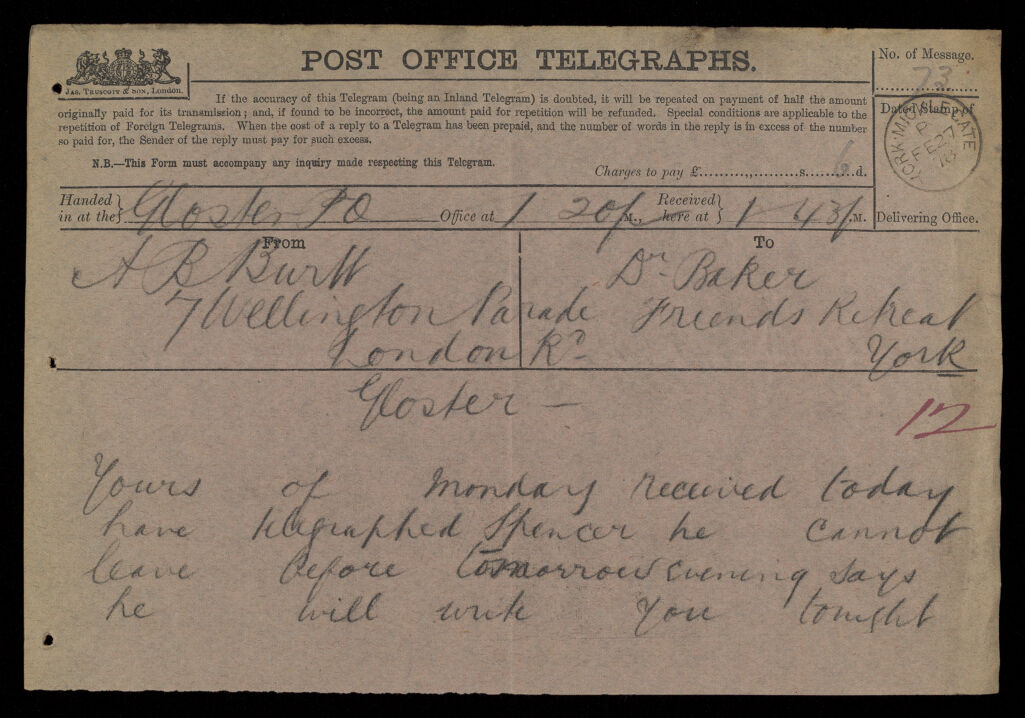 POST OFFICE TELEGRAPHS.
No. of Message.
73
JAS. TRUSCOTT & SON, London.
If the accuracy of this Telegram (being an Inland Telegram) is doubted, it will be repeated on payment of half the amount
originally paid for its transmission; and, if found to be incorrect, the amount paid for repetition will be refunded. Special conditions are applicable to the
repetition of Foreign Telegrams. When the cost of a reply to a Telegram has been prepaid, and the number of words in the reply is in excess of the number
so paid for, the Sender of the reply must pay for such excess.
N.B.—This Form must accompany any inquiry made respecting this Telegram.
Charges to pay £..........,,..........s. 6 d.
Dated Stamp of
YORK·MICKLEGATE
P
FE 27
78
Delivering Office.
Handed in at the } Gloster P O Office at 1 20 p M., Received here at } 1 43 p .M.
From
To
A B Burtt
7 Wellington Parade
London Rd
Gloster —
Dr. Baker
Friends Retreat
York
17
Yours of Monday received today
have telegraphed Spencer he cannot
leave before tomorrow evening says
he will write you tonight